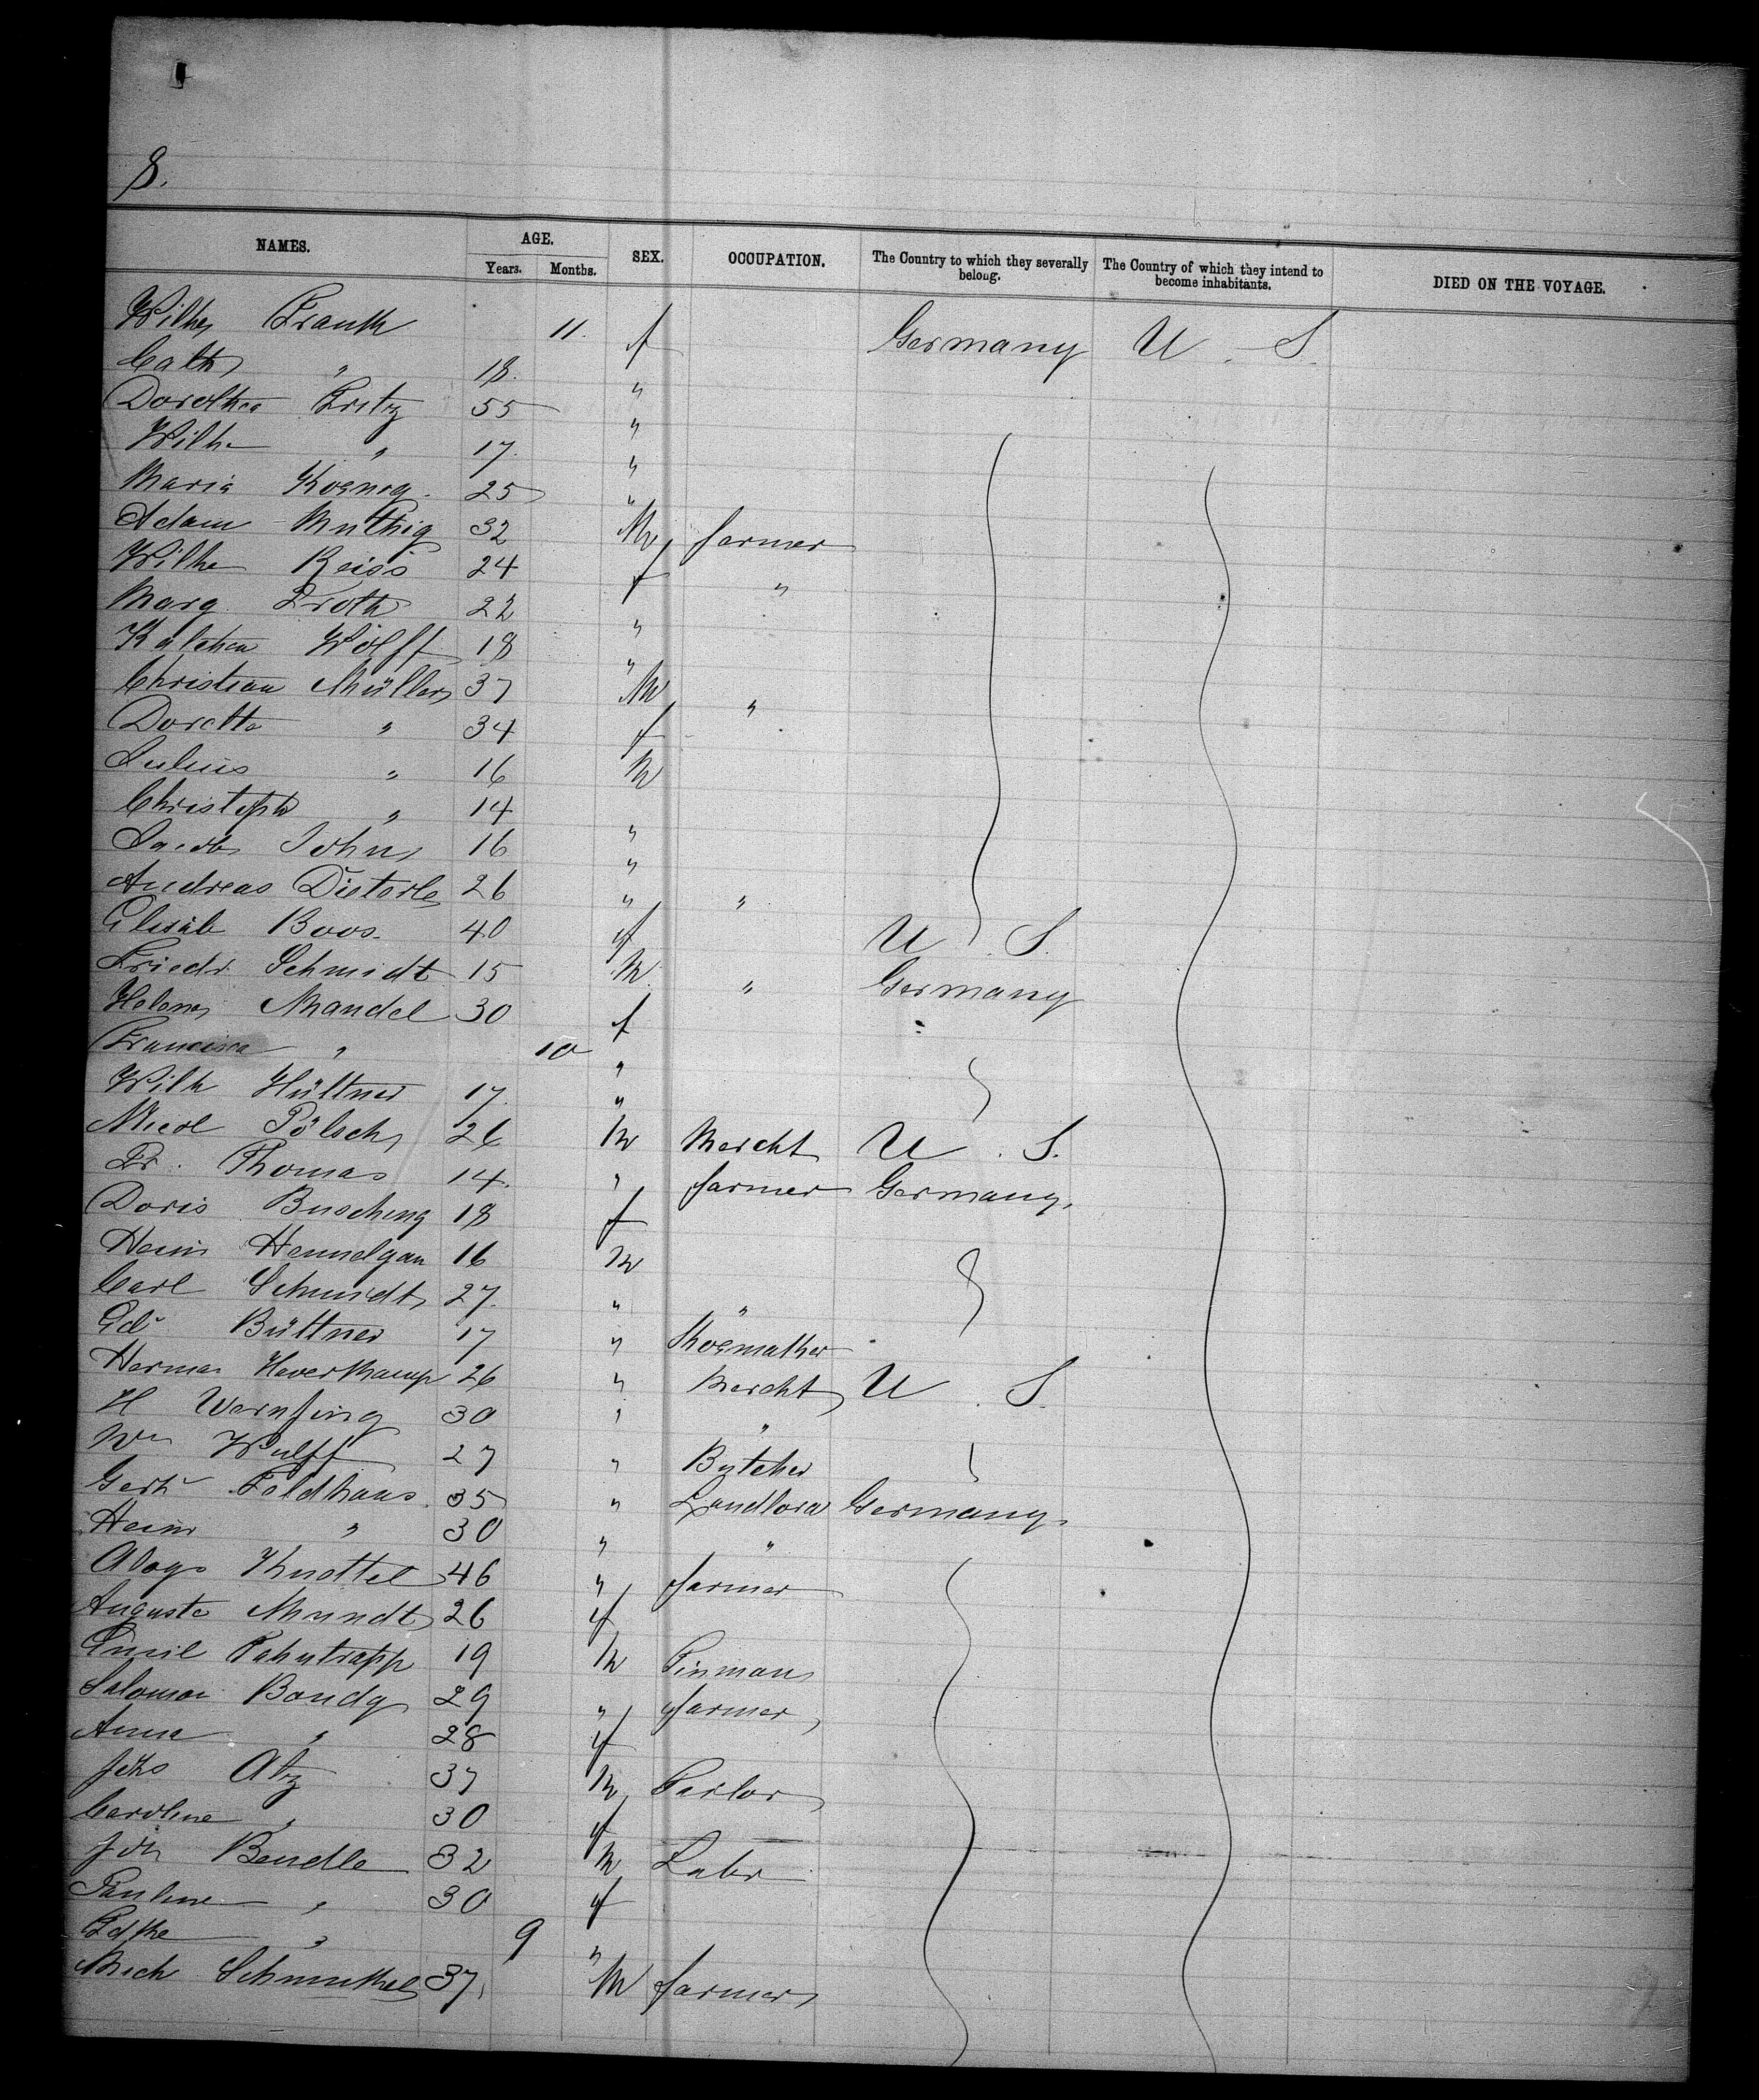 8.
NAMES. AGE. SEX. OCCUPATION. The Country to which they severally belong. The Country of which they intend to become inhabitants. DIED ON THE VOYAGE.
Years. Months.
Wilhe Frank 11. f Germany U. S.
Cath " 18. "
Dorothea Fritz 55 "
Wilhe " 17. "
Maria Koenig 25 "
Adam Muthig 32 M farmer
Wilhe Reiss 24 f "
Marg. Froth 22 "
Kalchen Wolff 18 "
Christian Müller 37 M "
Doretta " 34 f
Julius " 16 M
Christoph " 14 "
Jacob John 16 "
Andreas Dieterle 26 " "
Elisab Boos. 40 f U. S.
Friedr Schmidt 15 M. " Germany
Helene Mandel 30 f
Francisca " 10 "
Wilh Hüttner 17. "
Pölsch 26 M Mercht U. S.
Fr. Thomas 14. " farmer Germany.
Doris Busching 18 f
Heinr 16 M
Carl Schmidt 27. " "
Ed Büttner 17 " Shoemaker
Herman Haverkamp 26 " Mercht U. S.
H Wernsing 30 " "
Wm Wulff 27 " Butcher
Gerh Feldhaus 35 " Landlord Germany.
Heinr " 30 " "
Aloys Knottel 46 " farmer
Auguste Mundt 26 f
Emil 19 M Tinman
Salomon Bondy 29 " farmer
Anna " 28 f
Johs Atz 37 M Tailor
Caroline " 30 f
Joh Bendle 32 M Labr
Pauline " 30 f
" 9 "
Mich 37. M farmer